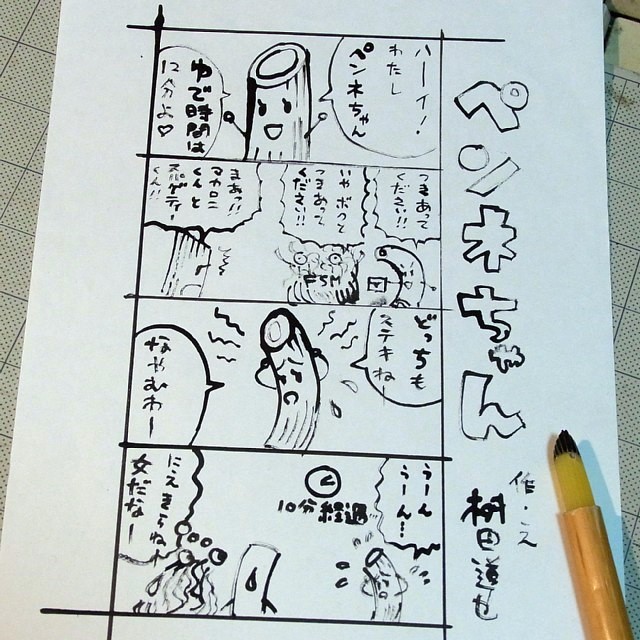 ペンネちゃん
作・え
樹田道也
ハーイ!
わたし
ペンネちゃん
ゆで時間は
12分よ♡
つきあって
ください!!
いやボクと
つきあって
ください!!
まあっ!!
マカロニ
くんと
スパゲティー
くん!!
FSM
どっちも
ステキねー
なやむわー
うーん
うーん…
10分経過
にえきらねぇ
女だなー